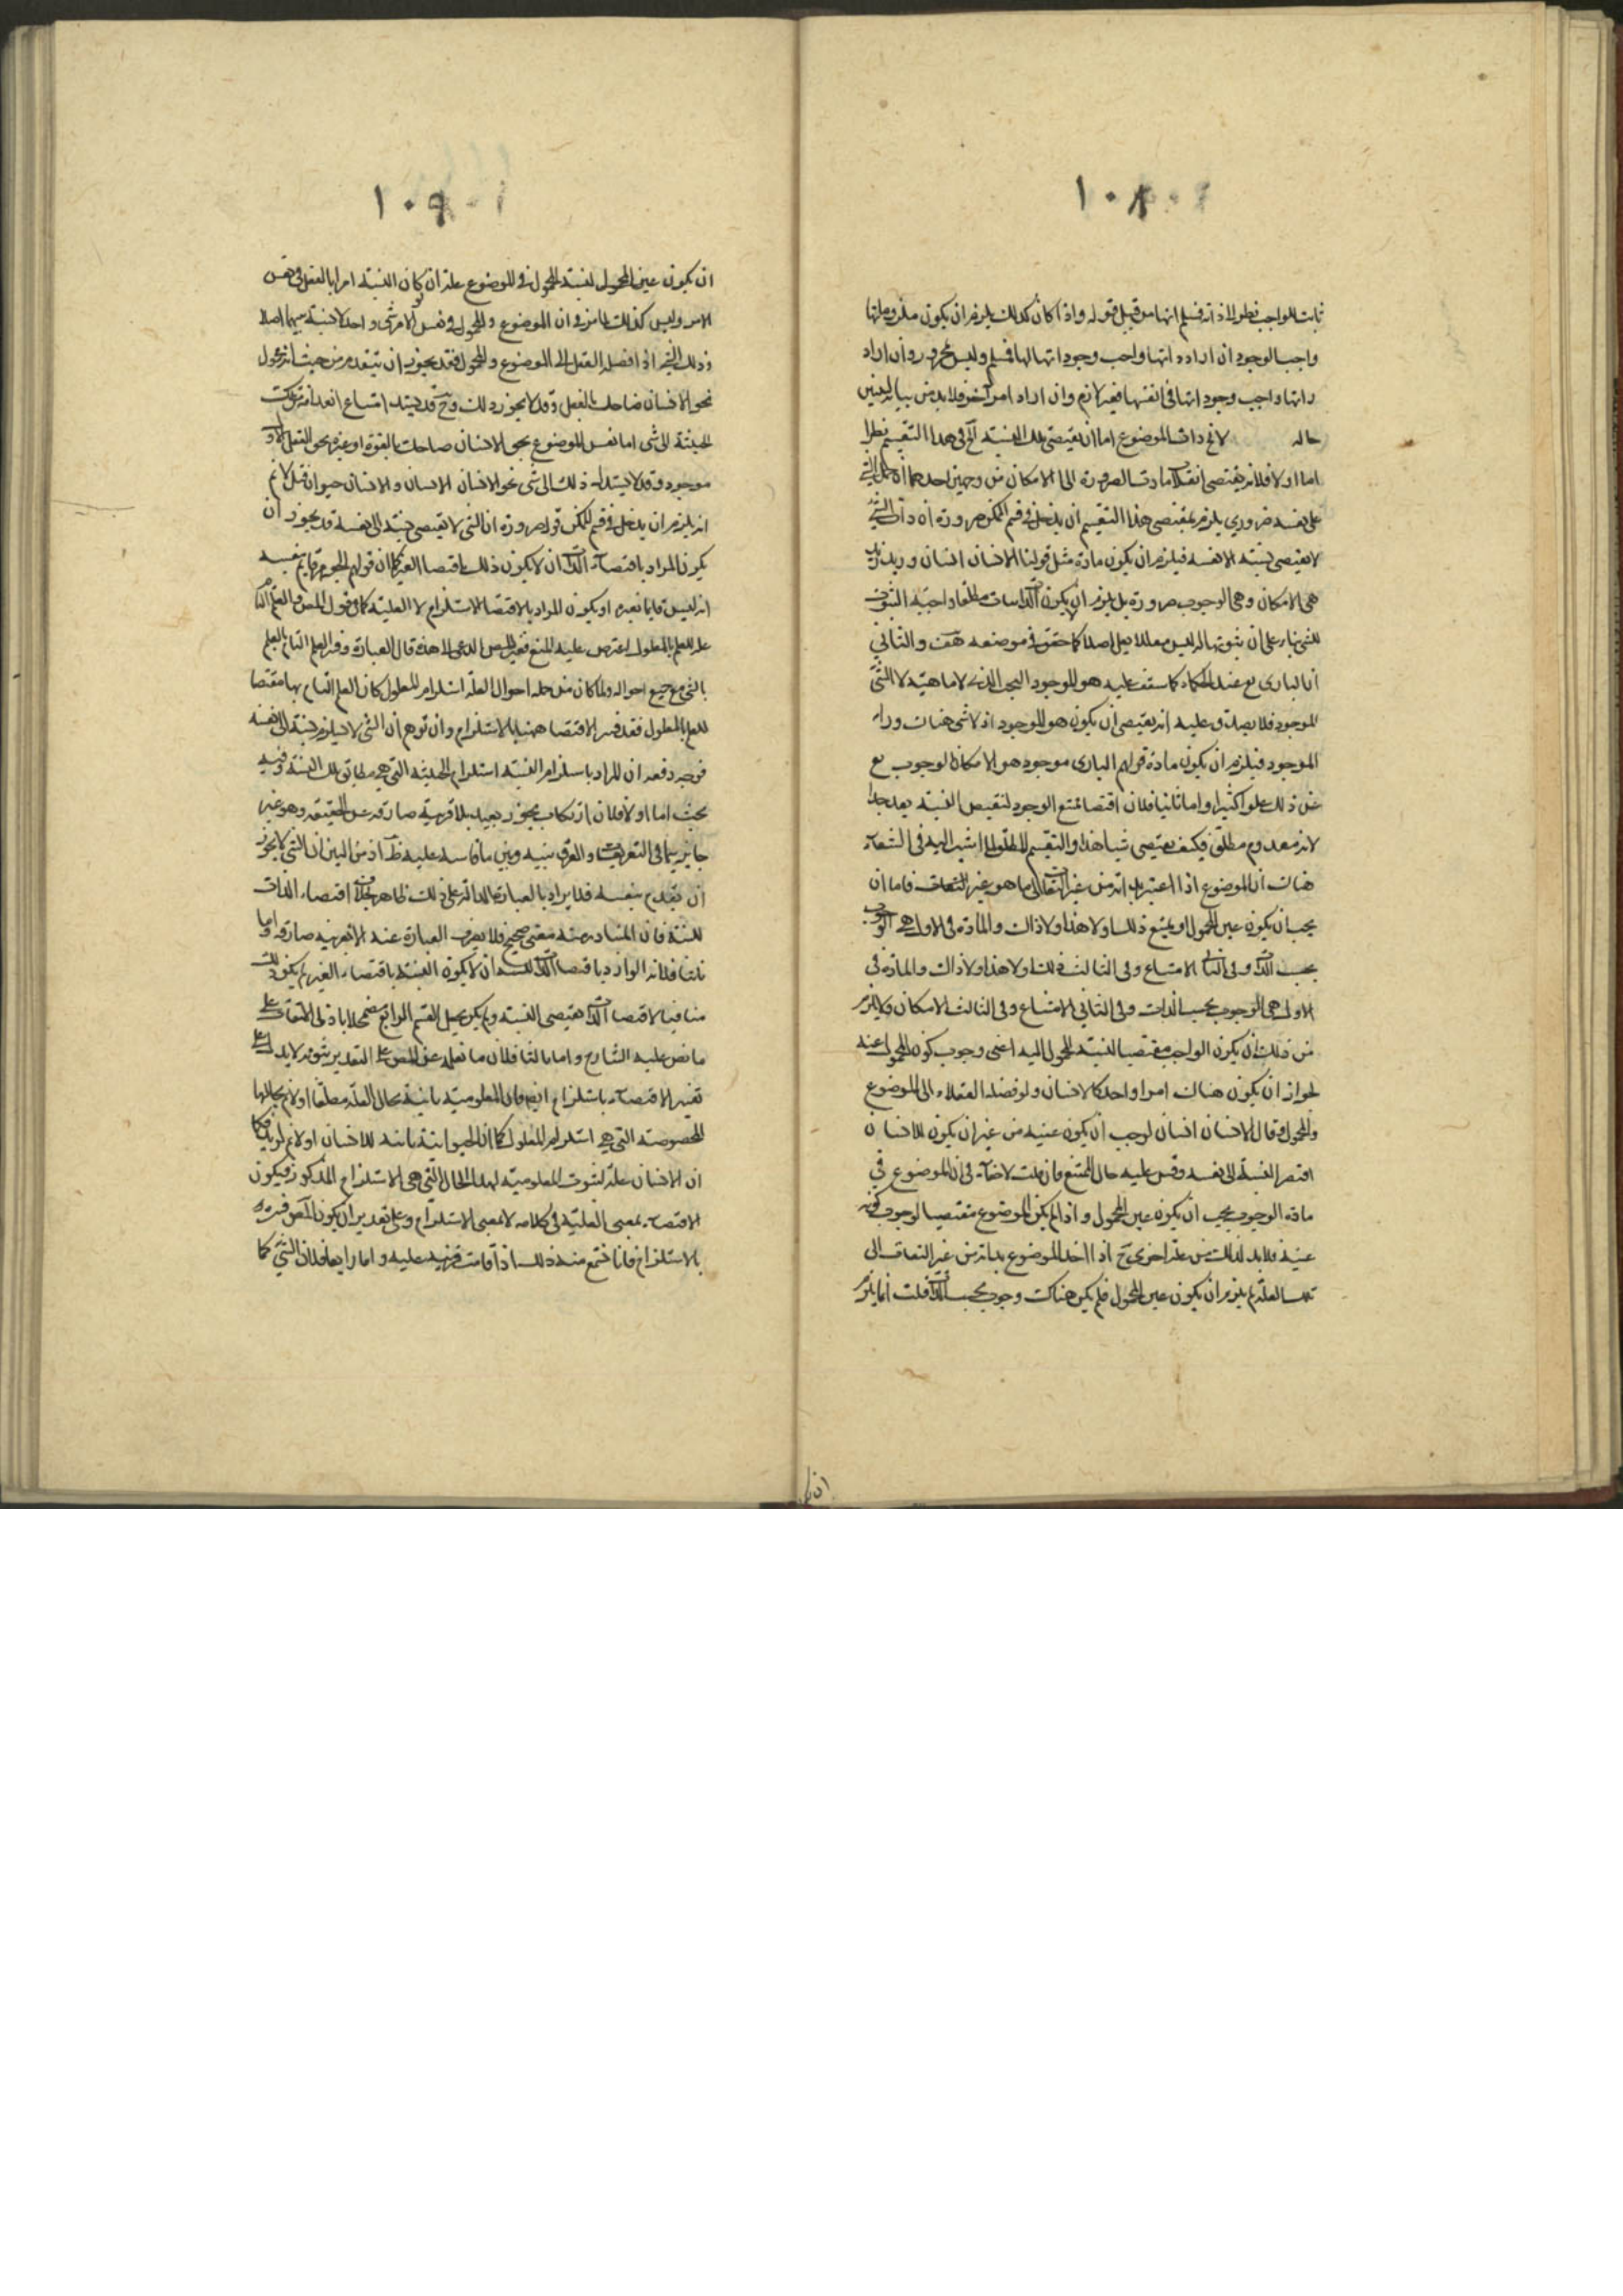 ١٠٨
ثابت للواجب نظرا لذاته فسلم انها من قبل قوله واذا كان كذلك يلزم ان يكون ملزوماتها
واجب الوجود ان اراد انها واجب وجود انها لها فسلم وليس بمحذور وان اراد
انها واجب وجود انها في انفسها فغير لازم وان اراد امرا آخر فلابد من بيانه ليتبين
حاله لا يخ ذات الموضوع اما ان يقتضى تلك النسبة الخ فى هذا التقسيم نظرا
اما اولا فلانه يقتضى انقلاب مادة الضرورة الى الامكان من وجهين احدهما ان حمل الشئ
على نفسه ضرورى يلزم بمقتضى هذا التقسيم ان يدخل فى قسم الممكن ضرورة ان ذات الشئ
لا يقتضى نسبته الى نفسه فيلزم ان يكون مادة مثل قولنا الانسان انسان وزيد زيد
هى الامكان وهى الوجوب ضرورة بل يلزم ان لا يكون الذاتيات مطلقا واجبة الثبوت
للشئ بناء على ان ثبوتها له ليس معللا بعلة اصلا كما حقق فى موضعه هف والثانى
ان البارى تع عند الحكماء كما ستقف عليه هو الوجود البحت الذى لا ماهية له لا الشئ
الموجود فلا يصدق عليه انه يقتضى ان يكون هو الموجود اذ لا شئ هناك وراء
الموجود فيلزم ان يكون مادة قولهم البارى موجود هو الامكان لا الوجوب تع
عن ذلك علوا كثيرا واما ثانيا فلان اقتضا ممتنع الوجود لنقيض النسبة بعيد جدا
لانه معدوم مطلق فكيف يقتضى شيئا هذا والتقسيم المطلوب ما اشير اليه فى الشفاء
هناك ان الموضوع اذا اعتبر بذاته من غير التفات الى ما هو غير التفات فاما ان
يجب ان يكون عين المحمول او يمتنع ذلك او لا هذا ولا ذاك والمادة فى الاول هى الوجوب
بحسب الذات وفى الثانى الامتناع وفى الثالث ذلك او لا هذا ولا ذاك والمادة فى
الاول هى الوجوب بحسب الذات وفى الثانى الامتناع وفى الثالث الامكان ولا يلزم
من ذلك ان يكون الواجب مقتضيا لنسبة المحمول اليه اعنى وجوب كون المحمول عينه
لجواز ان يكون هناك امرا واحدا كالانسان ولو فصله العقل الى الموضوع
والمحمول وقال الانسان انسان لوجب ان يكون عينه من غير ان يكون للانسان
اقتضاء النسبة الى نفسه وقس عليه حال الممتنع فان قلت لا خفاء فى ان الموضوع فى
مادة الوجوب يجب ان يكون عين المحمول واذا لم يكن الموضوع مقتضيا لوجوب كونه
عينه فلابد لذلك من علة اخرى وح اذا اخذ الموضوع بذاته من غير التفات الى
تلك العلة لم يلزم ان يكون عين المحمول فلم يكن هناك وجوب بحسب الذات قلت انما يلزم
ان
١٠٩
ان يكون عين المحمول لنسبة المحمول فى الموضوع علة ان لو كان النسبة امرا بالفعل فى نفس
الامر وليس كذلك لما مر فى ان الموضوع والمحمول فى نفس الامر شئ واحد لا نسبة بينهما اصلا
وذلك الشئ اذا فصله العقل الى الموضوع والمحمول فقد يجوز ان يتقدم من حيث انه محمول
نحو الانسان ضاحك بالفعل وقد لا يجوز ذلك وح قد يستند امتناع انعدامه
الحيثية الى شئ اما نفس الموضوع نحو الانسان ضاحك بالقوة او غيره نحو العقل الاول
موجود وقد لا يستند ذلك الى شئ نحو الانسان الانسان والانسان حيوان قيل لا نم
انه يلزم ان يدخل فى قسم الممكن قوله ضرورة ان الشئ لا يقتضى نسبته الى نفسه قد يجوز ان
يكون المراد باقتضاء الذات ان لا يكون ذلك باقتضا الغير كما ان قولهم الجوهر قايم بنفسه
انه ليس قايما بغيره او يكون المراد بالاقتضا الاستلزام لا العلية كما فى قول المص والعلم التام
علة للعلم بالمعلول اعترض عليه المنع فغير المص المدعى الى هذه قال العبارة وفسر العلم التام بالعلم
بالشئ مع جميع احواله ولما كان من جملة احوال العلة استلزام المعلول كان العلم التام بها مقتضيا
للعلم بالمعلول فقد فسر الاقتضا ههنا بالاستلزام وان توهم ان الشئ لا يستلزم نسبته الى نفسه
فوجه دفعه ان المراد باستلزام النسبة استلزام الحيثية التى هى مطابق تلك النسبة وفيه
بحث اما اولا فلان ارتكاب تجوز بعيد بلا قرينة صارفة عن الحقيقة وهو غير
جايز سيما فى التعريفات والفرق بينه وبين ما قاسه عليه ظ اذ من البين ان الشئ لا يجوز
ان يقوم بنفسه فلا يراد بالعبارة الدالة على ذلك ظاهر بخلاف اقتضاء الذات
للنسبة فان المتبادر منه معنى صحيح فلا يصرف العبارة عنه الا بقرينة صارفة واما
ثانيا فلانه لو اريد باقتضا الذات للنسبة ان لا يكون النسبة باقتضاء الغير لم يكن ذلك
منافيا لاقتضا الذات نقيض النسبة ولم يكن جعل القسم الرابع مضمحلا بادنى التفات على
ما نص عليه الشارح واما ثالثا فلان ما نقله عن المص على التقدير ثبوته لا يدل على
تفسير الاقتضاء باستلزام ايضا فان المعلومية ثابتة بحال العلة مطلقا او لا نم بحالها
المخصوصة التى هى استلزام المعلول كما ان الحيوانية ثابتة للانسان او لا نم لزيد فكما
ان الانسان علة لثبوت المعلومية لهذا الحال التى هى الاستلزام المذكور فيكون
الاقتضاء بمعنى العلية فى كلامه لا بمعنى الاستلزام وعلى تقدير ان يكون المص فسره
بالاستلزام فانا نمنع منه ذلك اذا قامت قرينة عليه واما رابعا فلان الشئ كما